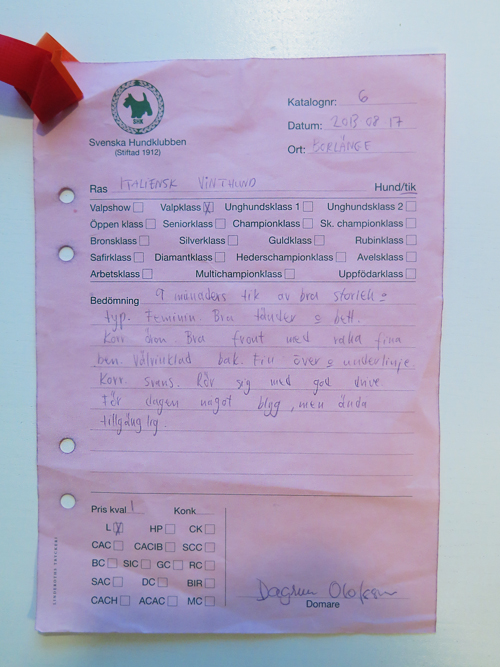 SHK
Svenska Hundklubben
(Stiftad 1912)
Katalognr: 6
Datum: 2013 08 17
Ort: BORLÄNGE
Ras ITALIENSK VINTHUND Hund/tik
Valpshow Valpklass X Unghundsklass 1 Unghundsklass 2
Öppen klass Seniorklass Championklass Sk. championklass
Bronsklass Silverklass Guldklass Rubinklass
Safirklass Diamantklass Hederschampionklass Avelsklass
Arbetsklass Multichampionklass Uppfödarklass
Bedömning 9 månaders tik av bra storlek o
typ. Feminin. Bra tänder o bett.
Korr öron Bra front med raka fina
ben. Välvinklad bak. Fin över o underlinje.
Korr. svans. Rör sig med god drive
För dagen något blyg, men ändå
tillgänglig.
Pris kval 1 Konk
L X HP CK
CAC CACIB SCC
BC SIC GC RC
SAC DC BIR
CACH ACAC MC
Domare